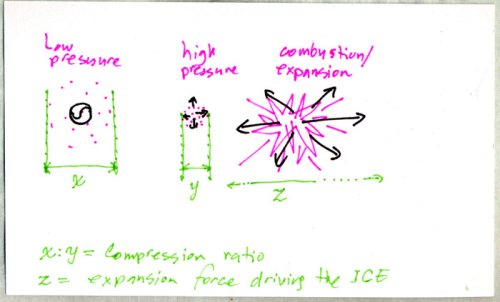 Low
pressure
high
pressure
combustion/
expansion
x
y
z
x:y = compression ratio
z = expansion force driving the ICE